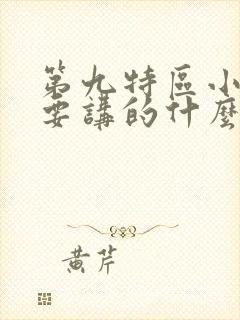 第九特區小
要講的什麼
黃芹